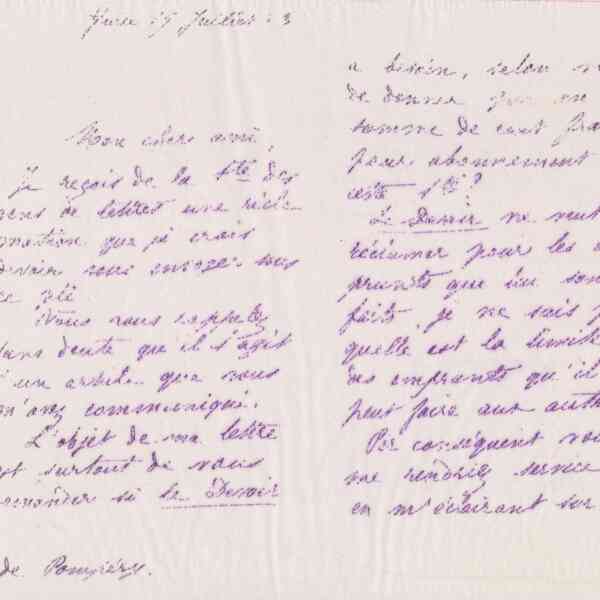 Juillet
Mon cher ami,
Je reçois de la Sté des
gens de lettres une récla-
mation que je crois
devoir vous envoyer sous
ce pli
Vous vous rappelez
sans doute que il s'agit
d'un article que vous
m'avez communiqué.
L'objet de ma lettre
est surtout de vous
demander si le Devoir
de Pompéry.
a besoin, selon
de donner
somme de cent fra
pour abonnement
cette Sté?
Le Devoir ne veut
réclamer pour les
prunts que lui son
faits, je ne sais p
quelle est la limite
des emprunts qu'il
peut faire aux auth
Par conséquent vou
me rendriez service
en m'éclairant sur